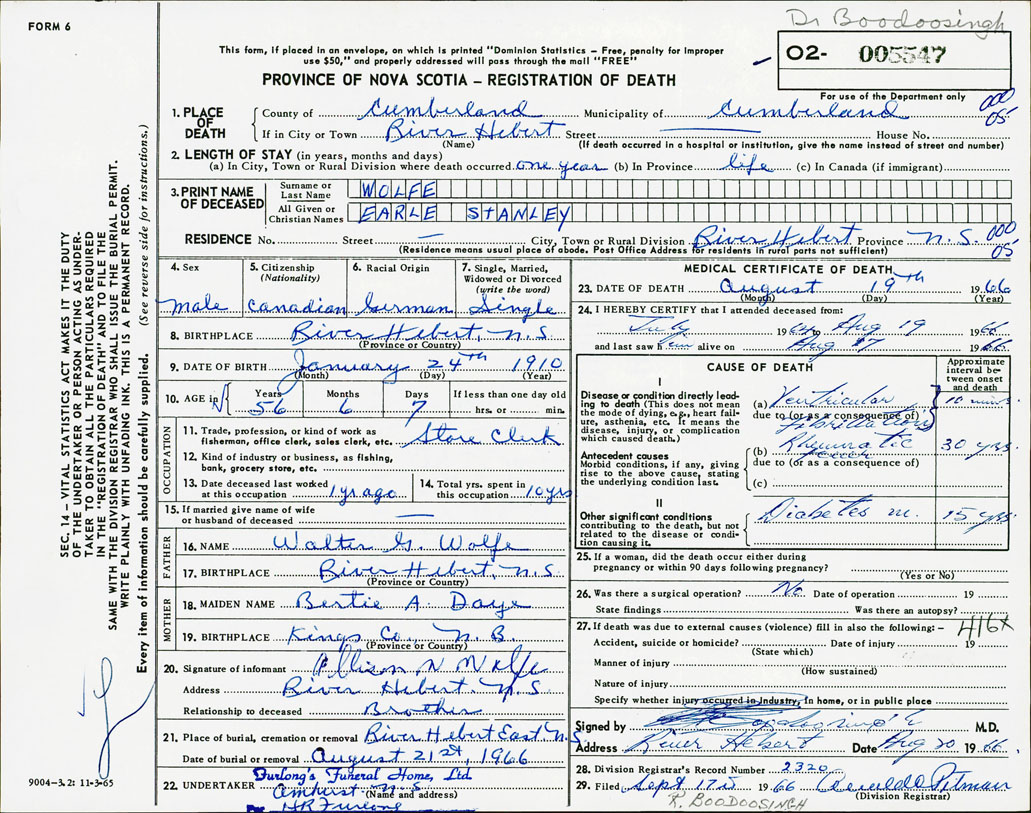 Dr Boodoosingh
FORM 6
This form, if placed in an envelope, on which is printed "Dominion Statistics – Free, penalty for improper
use $50," and properly addressed will pass through the mail "FREE"
O2- 005547
PROVINCE OF NOVA SCOTIA – REGISTRATION OF DEATH
For use of the Department only
000
05
1. PLACE OF DEATH
County of Cumberland Municipality of Cumberland
If in City or Town River Hebert Street — House No.
(Name) (If death occurred in a hospital or institution, give the name instead of street and number)
2. LENGTH OF STAY (in years, months and days)
(a) In City, Town or Rural Division where death occurred one year (b) In Province life (c) In Canada (if immigrant)
3. PRINT NAME OF DECEASED
Surname or Last Name WOLFE
All Given or Christian Names EARLE STANLEY
RESIDENCE No. Street — City, Town or Rural Division River Hebert Province N.S. 000
05
(Residence means usual place of abode. Post Office Address for residents in rural parts not sufficient)
4. Sex 5. Citizenship (Nationality) 6. Racial Origin 7. Single, Married, Widowed or Divorced (write the word)
male Canadian German Single
8. BIRTHPLACE River Hebert, N.S.
(Province or Country)
9. DATE OF BIRTH January 24th 1910
(Month) (Day) (Year)
10. AGE in Years Months Days If less than one day old
56 6 7 hrs. or min.
OCCUPATION
11. Trade, profession, or kind of work as
fisherman, office clerk, sales clerk, etc. Store Clerk
12. Kind of industry or business, as fishing,
bank, grocery store, etc.
13. Date deceased last worked
at this occupation 1 yr. ago
14. Total yrs. spent in
this occupation 10 yrs
15. If married give name of wife
or husband of deceased —
FATHER
16. NAME Walter G. Wolfe
17. BIRTHPLACE River Hebert, N.S.
(Province or Country)
MOTHER
18. MAIDEN NAME Bertie A. Daye
19. BIRTHPLACE Kings Co. N.B.
(Province or Country)
20. Signature of informant Allison N Wolfe
Address River Hebert N.S
Relationship to deceased Brother
21. Place of burial, cremation or removal River Hebert East N.S
Date of burial or removal August 21st, 1966
22. UNDERTAKER Furlong's Funeral Home, Ltd.
Amherst N.S
(Name and address)
Per HR Furlong
MEDICAL CERTIFICATE OF DEATH
23. DATE OF DEATH August 19th 1966
(Month) (Day) (Year)
24. I HEREBY CERTIFY that I attended deceased from:
July 1964 to Aug 19 1966
and last saw him alive on Aug 17 1966
CAUSE OF DEATH
Approximate interval between onset and death
I
Disease or condition directly leading to death (This does not mean the mode of dying, e.g., heart failure, asthenia, etc. It means the disease, injury, or complication which caused death.)
(a) Ventricular 10 mins
due to (or as a consequence of)
Fibrillation
Antecedent causes
Morbid conditions, if any, giving rise to the above cause, stating the underlying condition last.
(b) Rheumatic 30 yrs.
due to (or as a consequence of)
(c)
II
Other significant conditions
contributing to the death, but not related to the disease or condition causing it.
Diabetes m. 15 yrs.
25. If a woman, did the death occur either during
pregnancy or within 90 days following pregnancy?
(Yes or No)
26. Was there a surgical operation? No. Date of operation 19
State findings Was there an autopsy?
27. If death was due to external causes (violence) fill in also the following: – 416X
Accident, suicide or homicide? Date of injury 19
(State which)
Manner of injury
(How sustained)
Nature of injury
Specify whether injury occurred in Industry, in home, or in public place
Signed by M.D.
Address River Hebert Date Aug 20 1966
28. Division Registrar's Record Number 2320
29. Filed Sept 17 1966 Pitman
(Division Registrar)
R. BOODOOSINGH
SEC. 14 – VITAL STATISTICS ACT MAKES IT THE DUTY
OF THE UNDERTAKER OR PERSON ACTING AS UNDER-
TAKER TO OBTAIN ALL THE PARTICULARS REQUIRED
IN THE "REGISTRATION OF DEATH" AND TO FILE THE
SAME WITH THE DIVISION REGISTRAR WHO SHALL ISSUE THE BURIAL PERMIT.
WRITE PLAINLY WITH UNFADING INK. THIS IS A PERMANENT RECORD.
Every item of information should be carefully supplied. (See reverse side for instructions.)
9004-3.2: 11-3-65